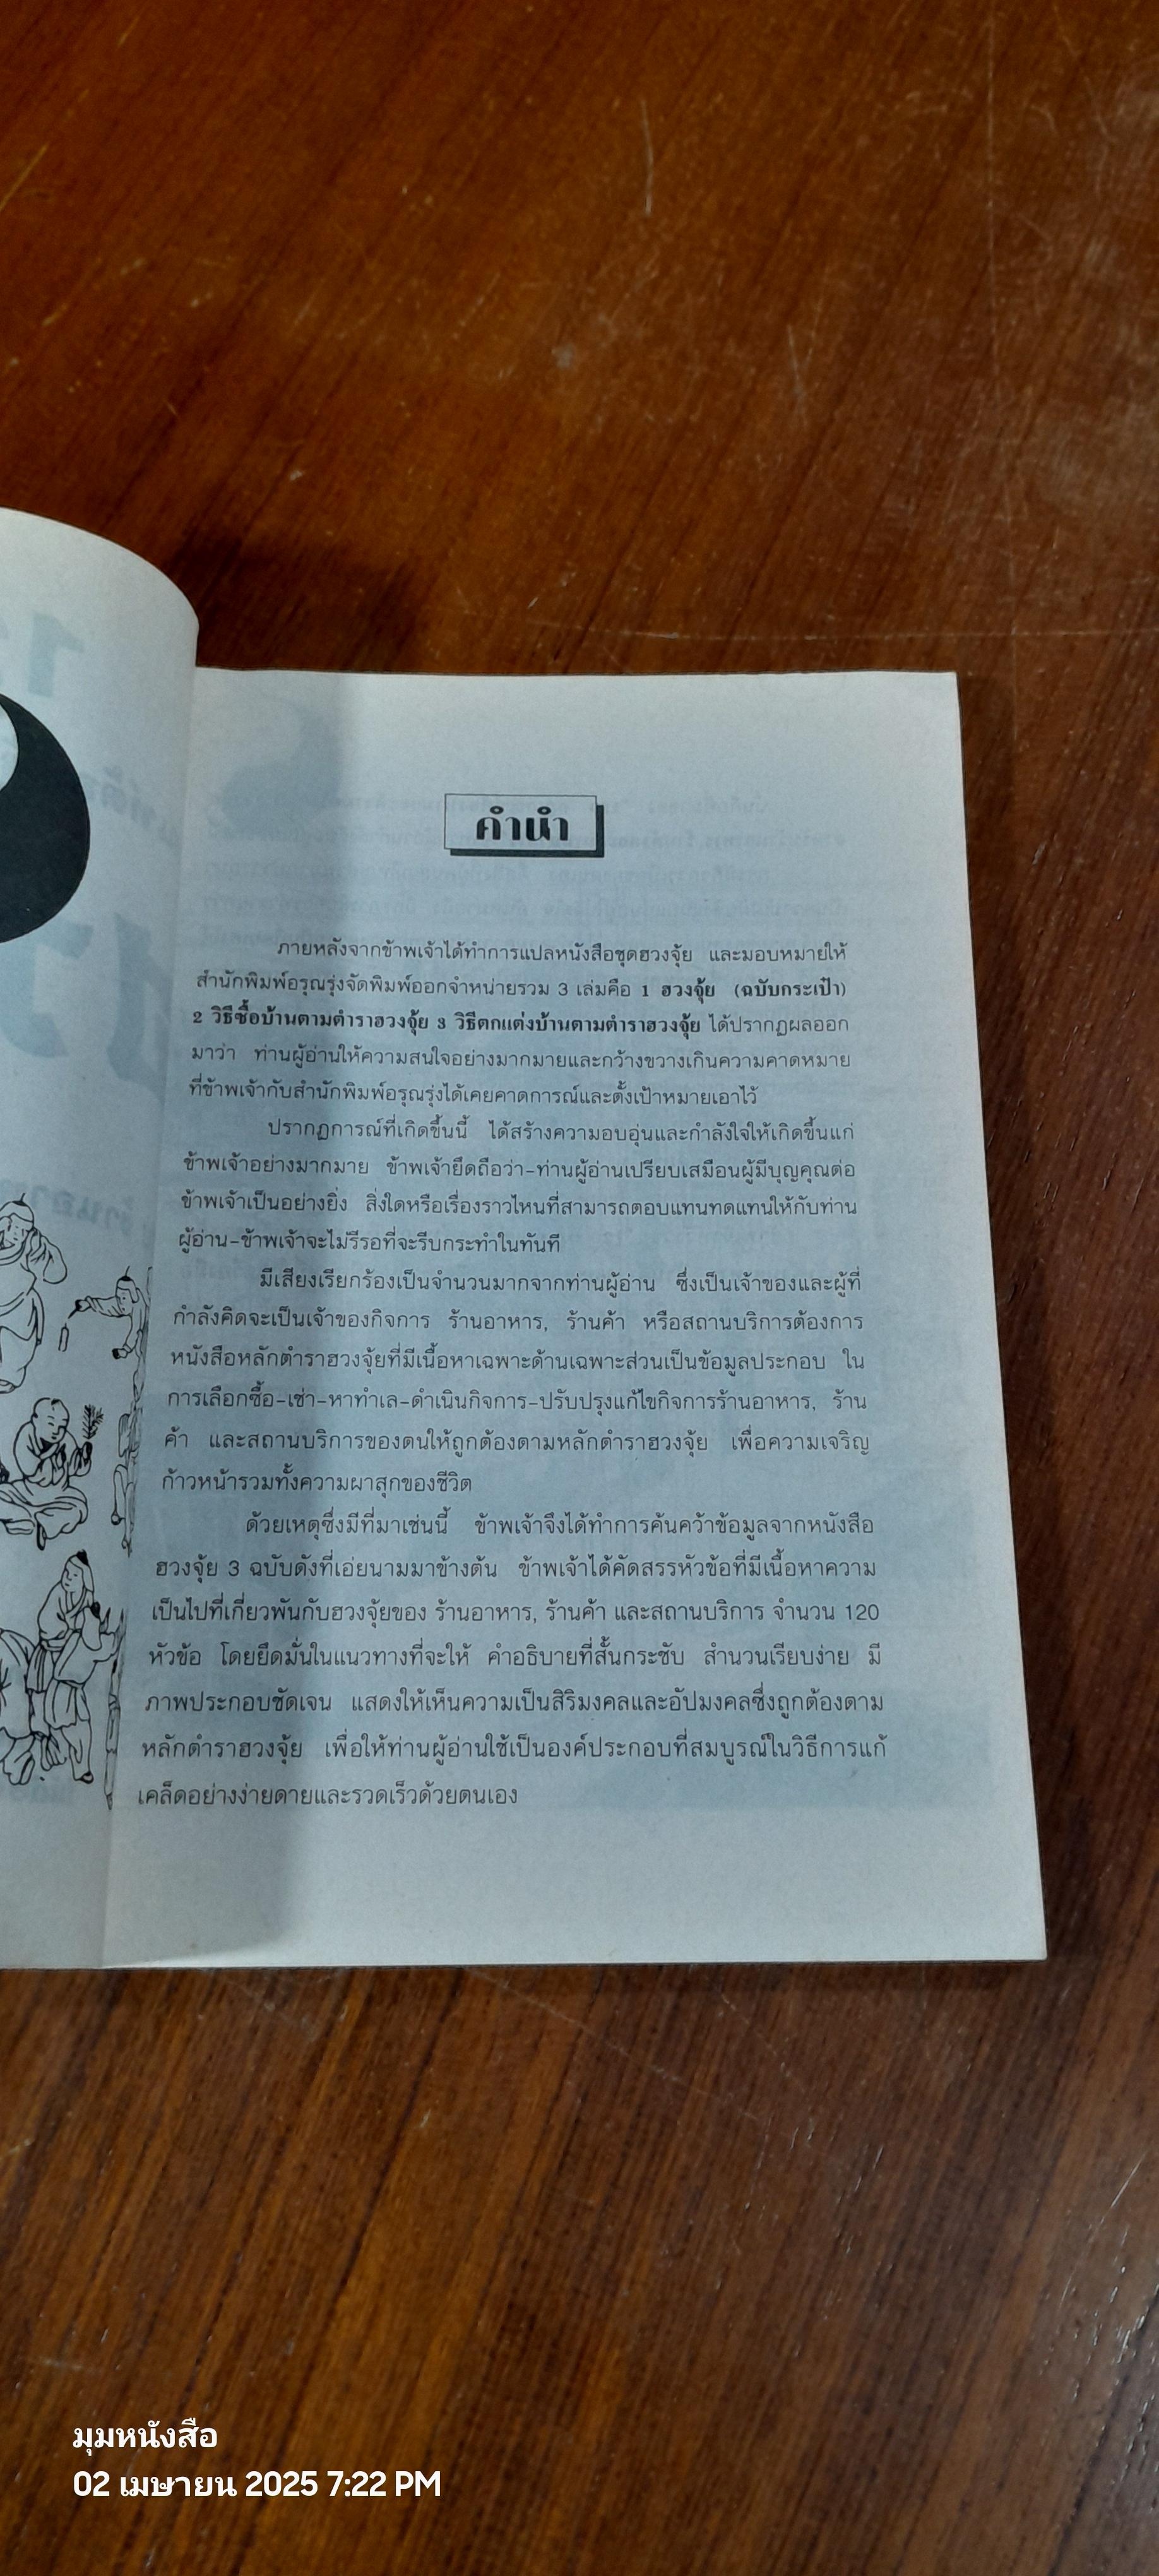 คำนำ
ภายหลังจากข้าพเจ้าได้ทำการแปลหนังสือชุดฮวงจุ้ย และมอบหมายให้
สำนักพิมพ์อรุณรุ่งจัดพิมพ์ออกจำหน่ายรวม 3 เล่มคือ 1 ฮวงจุ้ย (ฉบับกระเป๋า)
2 วิธีซื้อบ้านตามตำราฮวงจุ้ย 3 วิธีตกแต่งบ้านตามตำราฮวงจุ้ย ได้ปรากฏผลออก
มาว่า ท่านผู้อ่านให้ความสนใจอย่างมากมายและกว้างขวางเกินความคาดหมาย
ที่ข้าพเจ้ากับสำนักพิมพ์อรุณรุ่งได้เคยคาดการณ์และตั้งเป้าหมายเอาไว้
ปรากฏการณ์ที่เกิดขึ้นนี้ ได้สร้างความอบอุ่นและกำลังใจให้เกิดขึ้นแก่
ข้าพเจ้าอย่างมากมาย ข้าพเจ้ายึดถือว่า-ท่านผู้อ่านเปรียบเสมือนผู้มีบุญคุณต่อ
ข้าพเจ้าเป็นอย่างยิ่ง สิ่งใดหรือเรื่องราวไหนที่สามารถตอบแทนทดแทนให้กับท่าน
ผู้อ่าน-ข้าพเจ้าจะไม่รีรอที่จะรีบกระทำในทันที
มีเสียงเรียกร้องเป็นจำนวนมากจากท่านผู้อ่าน ซึ่งเป็นเจ้าของและผู้ที่
กำลังคิดจะเป็นเจ้าของกิจการ ร้านอาหาร, ร้านค้า หรือสถานบริการต้องการ
หนังสือหลักตำราฮวงจุ้ยที่มีเนื้อหาเฉพาะด้านเฉพาะส่วนเป็นข้อมูลประกอบ ใน
การเลือกซื้อ-เช่า-หาทำเล-ดำเนินกิจการ-ปรับปรุงแก้ไขกิจการร้านอาหาร, ร้าน
ค้า และสถานบริการของตนให้ถูกต้องตามหลักตำราฮวงจุ้ย เพื่อความเจริญ
ก้าวหน้ารวมทั้งความผาสุกของชีวิต
ด้วยเหตุซึ่งมีที่มาเช่นนี้ ข้าพเจ้าจึงได้ทำการค้นคว้าข้อมูลจากหนังสือ
ฮวงจุ้ย 3 ฉบับดังที่เอ่ยนามมาข้างต้น ข้าพเจ้าได้คัดสรรหัวข้อที่มีเนื้อหาความ
เป็นไปที่เกี่ยวพันกับฮวงจุ้ยของ ร้านอาหาร, ร้านค้า และสถานบริการ จำนวน 120
หัวข้อ โดยยึดมั่นในแนวทางที่จะให้ คำอธิบายที่สั้นกระชับ สำนวนเรียบง่าย มี
ภาพประกอบชัดเจน แสดงให้เห็นความเป็นสิริมงคลและอัปมงคลซึ่งถูกต้องตาม
หลักตำราฮวงจุ้ย เพื่อให้ท่านผู้อ่านใช้เป็นองค์ประกอบที่สมบูรณ์ในวิธีการแก้
เคล็ดอย่างง่ายดายและรวดเร็วด้วยตนเอง
มุมหนังสือ
02 เมษายน 2025 7:22 PM